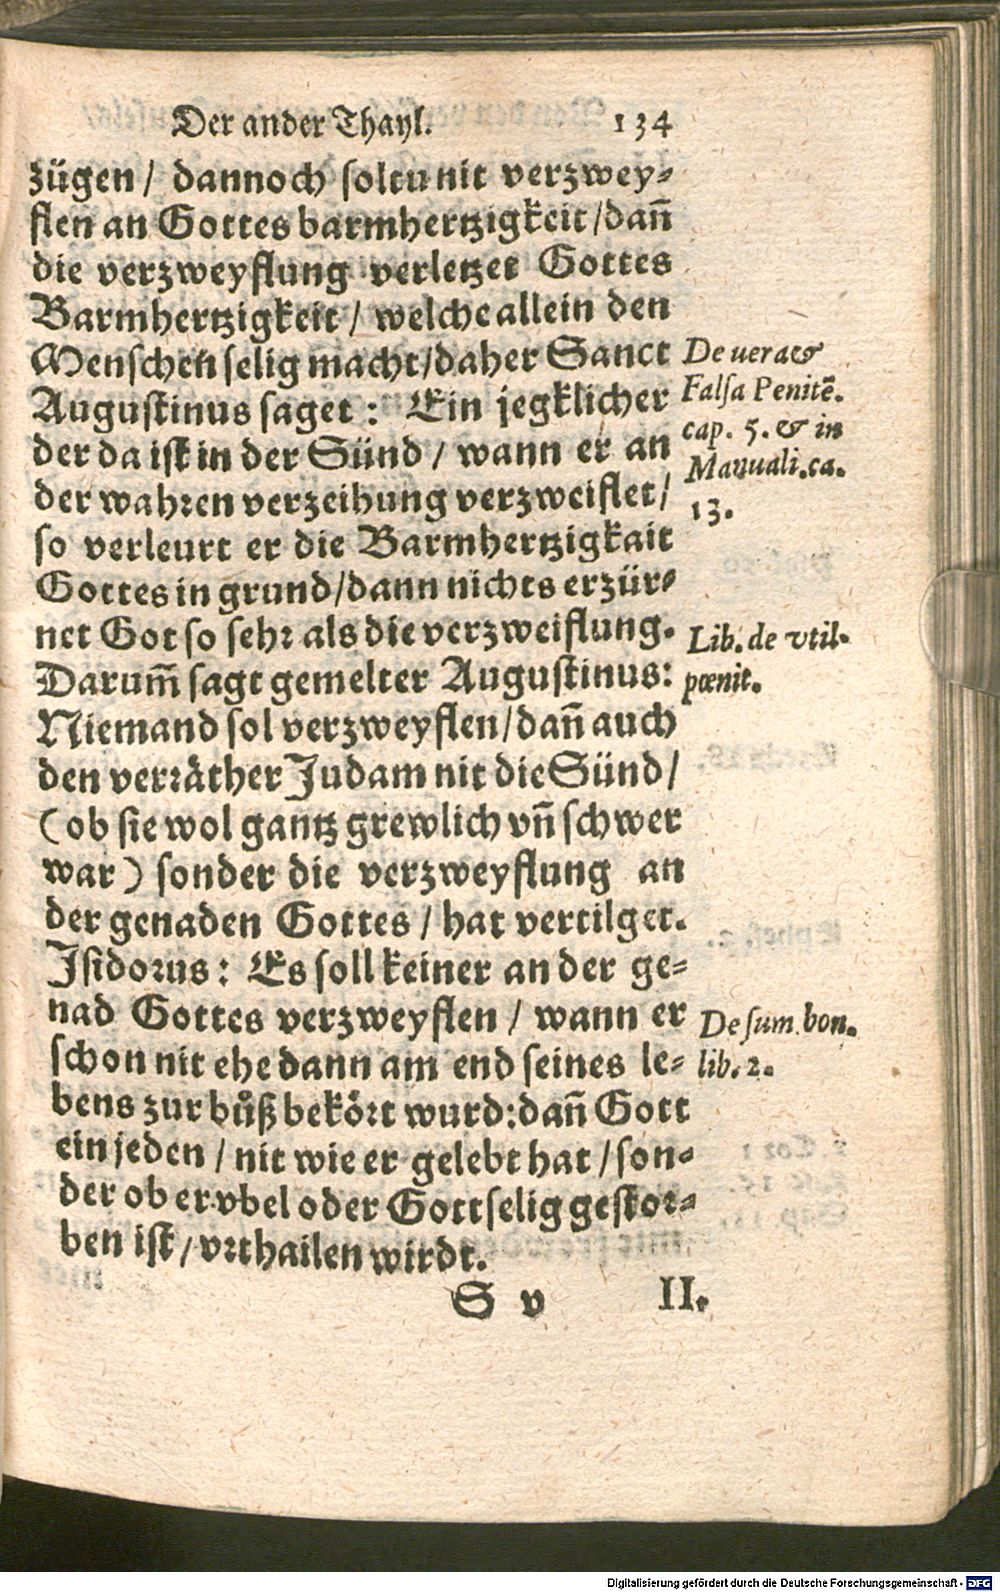 Der ander Thayl. 134
zügen / dannoch soltu nit verzwey-
flen an Gottes barmhertzigkeit / dañ
die verzweyflung verletzet Gottes
Barmhertzigkeit / welche allein den
Menschen selig macht / daher Sanct
Augustinus saget : Ein jegklicher
der da ist in der Sünd / wann er an
der wahren verzeihung verzweiflet /
so verleurt er die Barmhertzigkait
Gottes in grund / dann nichts erzür-
net Got so sehr als die verzweiflung.
Darum̃ sagt gemelter Augustinus:
Niemand sol verzweyflen / dañ auch
den verräther Judam nit die Sünd /
(ob sie wol gantz grewlich vñ schwer
war) sonder die verzweyflung an
der genaden Gottes / hat vertilget.
Isidorus : Es soll keiner an der ge-
nad Gottes verzweyflen / wann er
schon nit ehe dann am end seines le-
bens zur bůß bekört wurd: dañ Gott
ein jeden / nit wie er gelebt hat / son-
der ob er vbel oder Gottselig gestor-
ben ist / vrthailen wirdt.
S v II.
De uera &
Falsa Penitē.
cap. 5. & in
Manuali. ca.
13.
Lib. de vtil.
pœnit.
De sum. bon.
lib. 2.
Digitalisierung gefördert durch die Deutsche Forschungsgemeinschaft - DFG